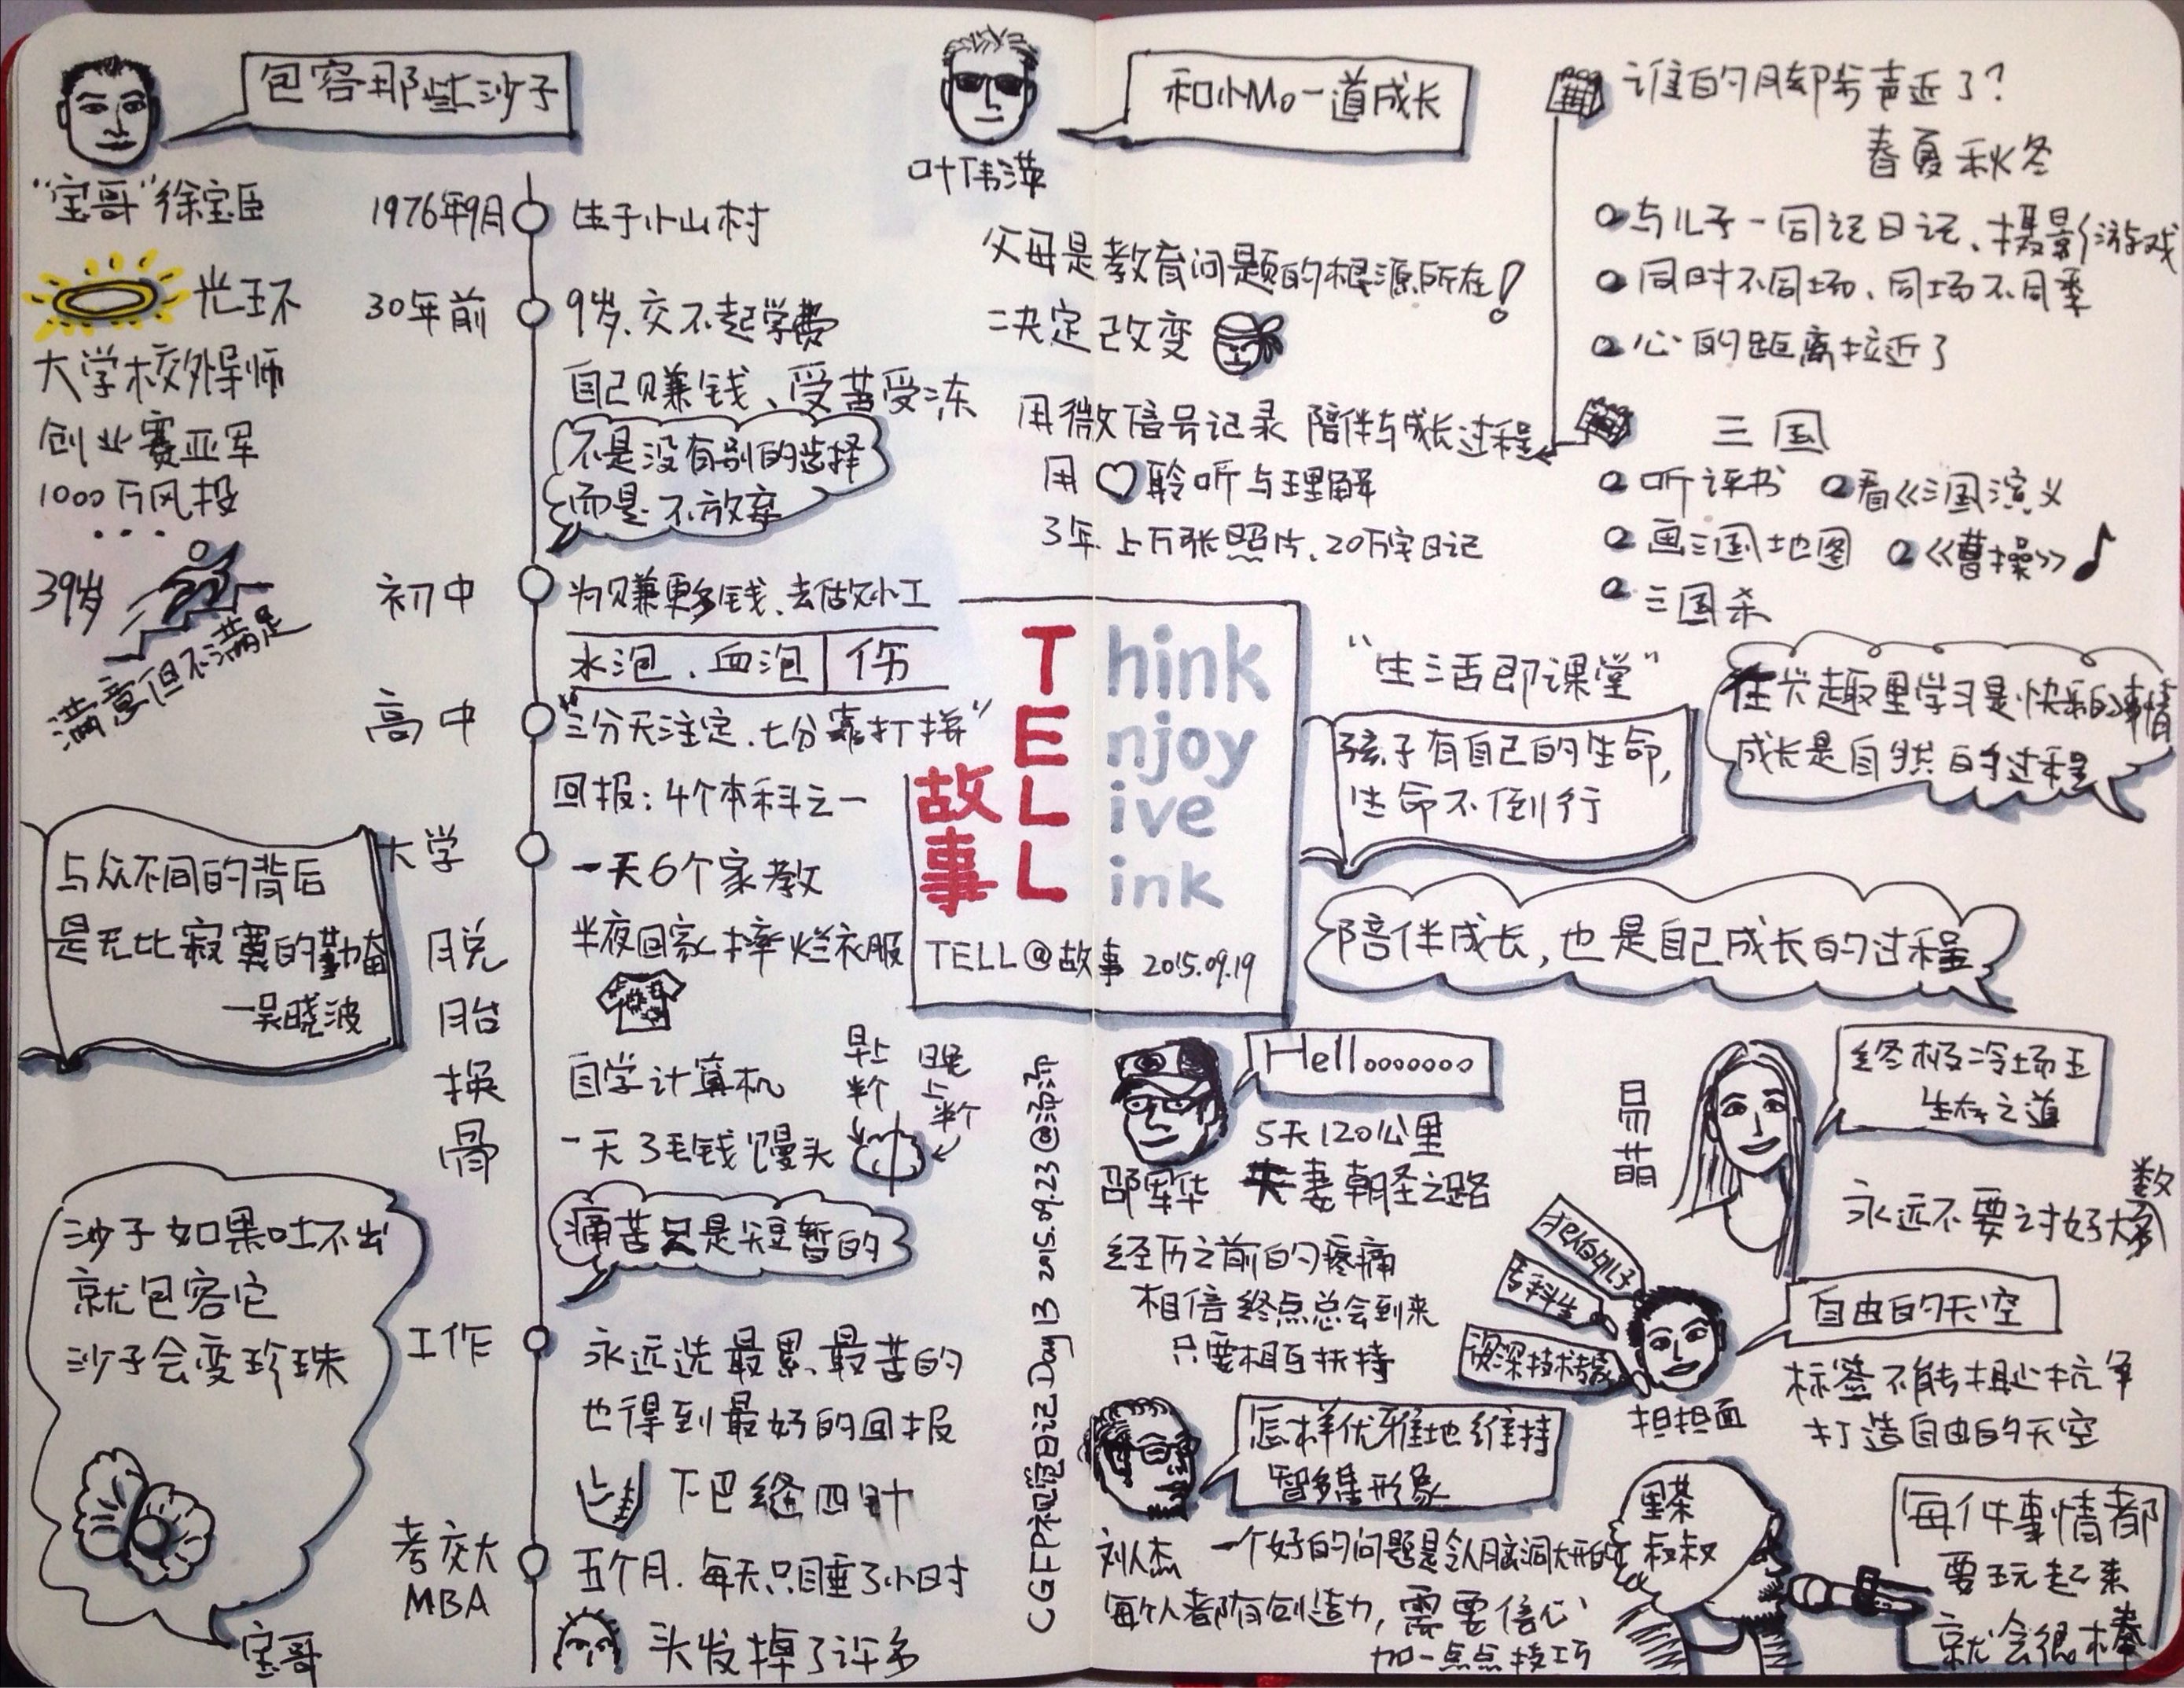 包容那些沙子
"宝哥"徐宝臣
光环
大学校外导师
创业赛亚军
1000万风投
...
39岁
满意但不满足
与众不同的背后
是无比寂寞的勤奋
—吴晓波
沙子如果吐不出
就包容它
沙子会变珍珠
宝哥
1976年9月 生于小山村
30年前 9岁、交不起学费
自己赚钱、受苦受冻
不是没有别的选择
而是不放弃
初中 为赚更多钱、去做小工
水泡、血泡 伤
高中 "三分天注定、七分靠打拼"
回报：4个本科之一
大学 一天6个家教
半夜回家摔烂衣服
脱胎换骨
自学计算机
一天3毛钱馒头
早上半个
晚上半个
痛苦只是短暂的
工作 永远选最累、最苦的
也得到最好的回报
下巴缝四针
考交大MBA 五个月、每天只睡3小时
头发掉了许多
和小Mo一道成长
叶伟萍
父母是教育问题的根源所在!
=决定改变
用微信号记录 陪伴与成长过程
用♡聆听与理解
3年 上万张照片、20万字日记
谁的脚步声近了?
春夏秋冬
与儿子一同记日记、摄影游戏
同时不同场、同场不同季
心的距离拉近了
三国
听评书 看《三国演义
画三国地图 《曹操》♪
三国杀
"生活即课堂"
孩子有自己的生命,
生命不倒行
在兴趣里学习是快乐的事情
成长是自然的过程
陪伴成长,也是自己成长的过程
Think
Enjoy
Live
Link
故事
TELL@故事 2015.09.19
CGFP视觉日记Day13 2015.09.23@沛沛
Hellooooooo
邵军华
5天120公里
夫妻朝圣之路
经历之前的疼痛
相信终点总会到来
只要相互扶持
易萌
终极冷场王
生存之道
永远不要讨好大多数
专科生
资深技术
担担面
自由的天空
标签不能撕,抗争
打造自由的天空
怎样优雅地维持
智多星形象
刘人杰
一个好的问题是令人脑洞大开的
每个人都有创造力,需要信心
加一点点技巧
黑茶
叔叔
每件事情都
要玩起来
就会很棒